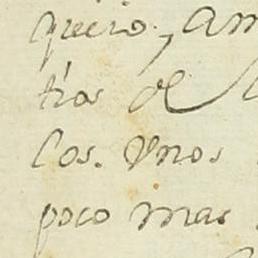 queiro., Am
tras de
Cos. Vnos
poco mas